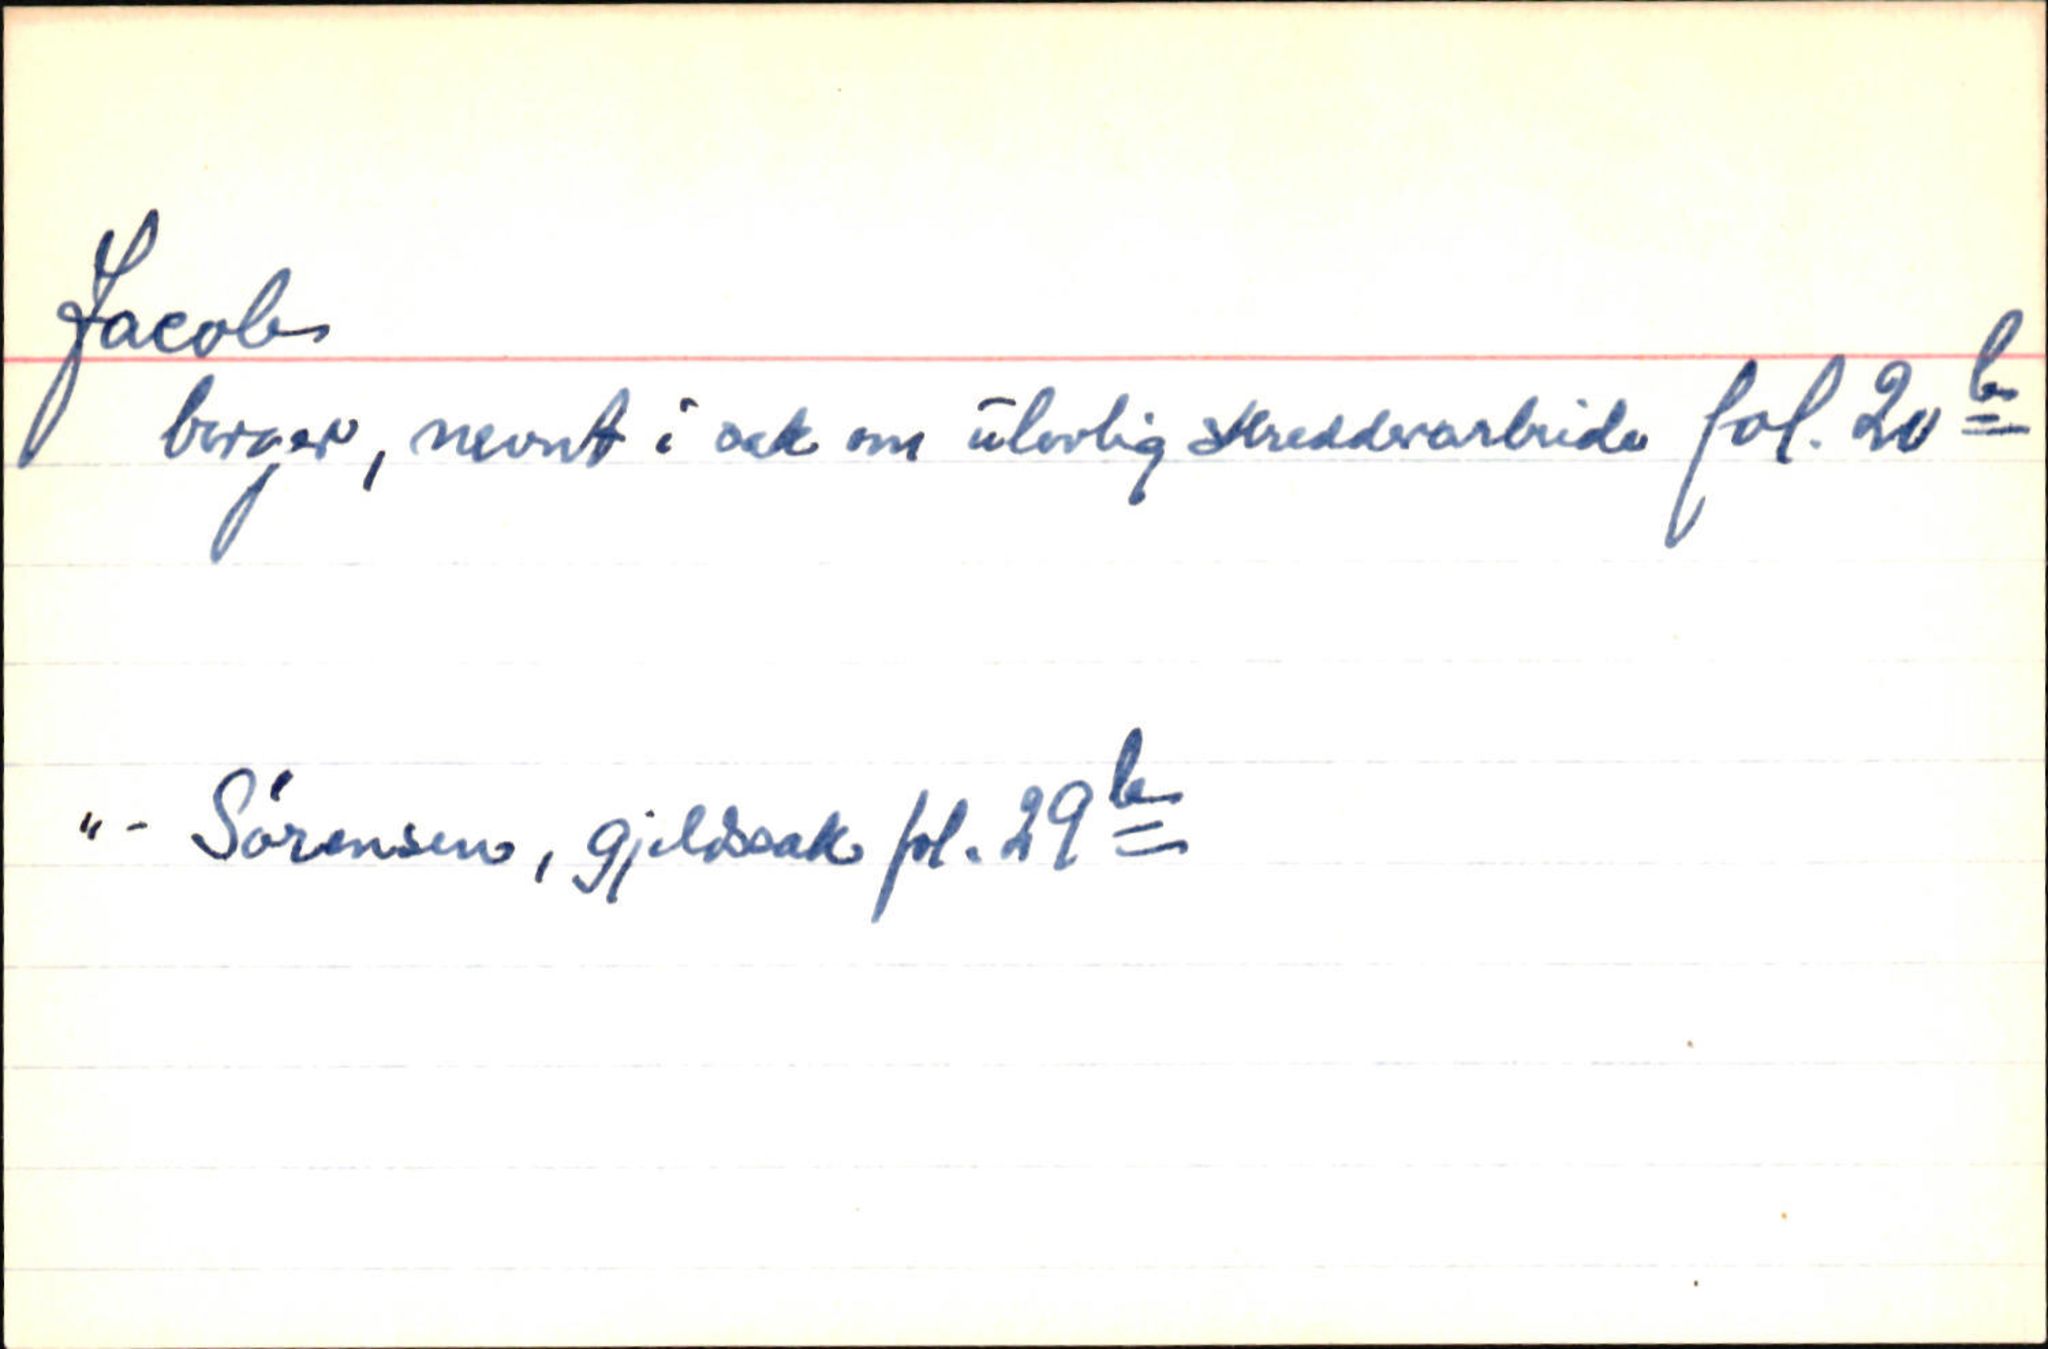 Jacob
borger, nevnt i sak om ulovlig skreddararbeide fol. 20 b
"- Sörensen, gjeldssak fol. 29 b